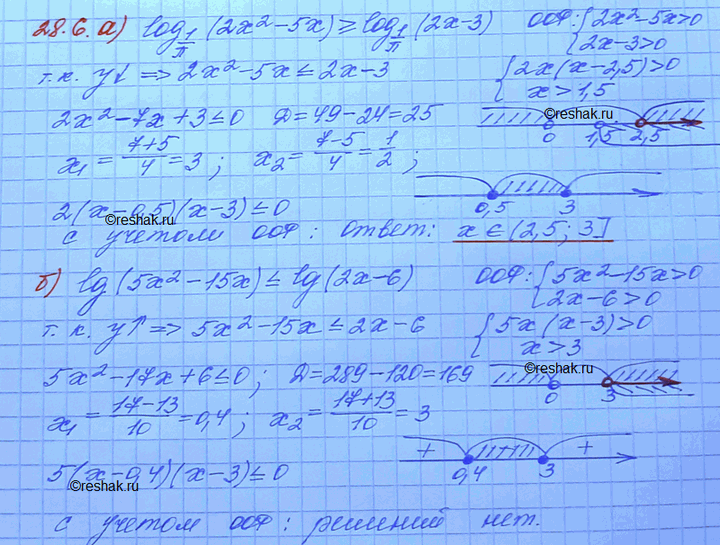 28.6. а) log_{1/π} (2x² - 5x) ≥ log_{1/π} (2x - 3) ООФ: { 2x² - 5x > 0
2x - 3 > 0
т.к. y↓ => 2x² - 5x ≤ 2x - 3 { 2x(x - 2,5) > 0
x > 1,5
2x² - 7x + 3 ≤ 0 D = 49 - 24 = 25
©reshak.ru
0 1,5 2,5
x₁ = (7+5)/4 = 3 ; x₂ = (7-5)/4 = 1/2 ;
2(x - 0,5)(x - 3) ≤ 0
0,5 3
©reshak.ru
с учетом ООФ: ответ: x ∈ (2,5; 3]
б) lg(5x² - 15x) ≤ lg(2x - 6) ООФ: { 5x² - 15x > 0
2x - 6 > 0
т.к. y↑ => 5x² - 15x ≤ 2x - 6 { 5x(x - 3) > 0
x > 3
5x² - 17x + 6 ≤ 0 ; D = 289 - 120 = 169
©reshak.ru
0 3
x₁ = (17-13)/10 = 0,4 ; x₂ = (17+13)/10 = 3
+ +
5(x - 0,4)(x - 3) ≤ 0
0,4 3
©reshak.ru
с учетом ООФ: решений нет.